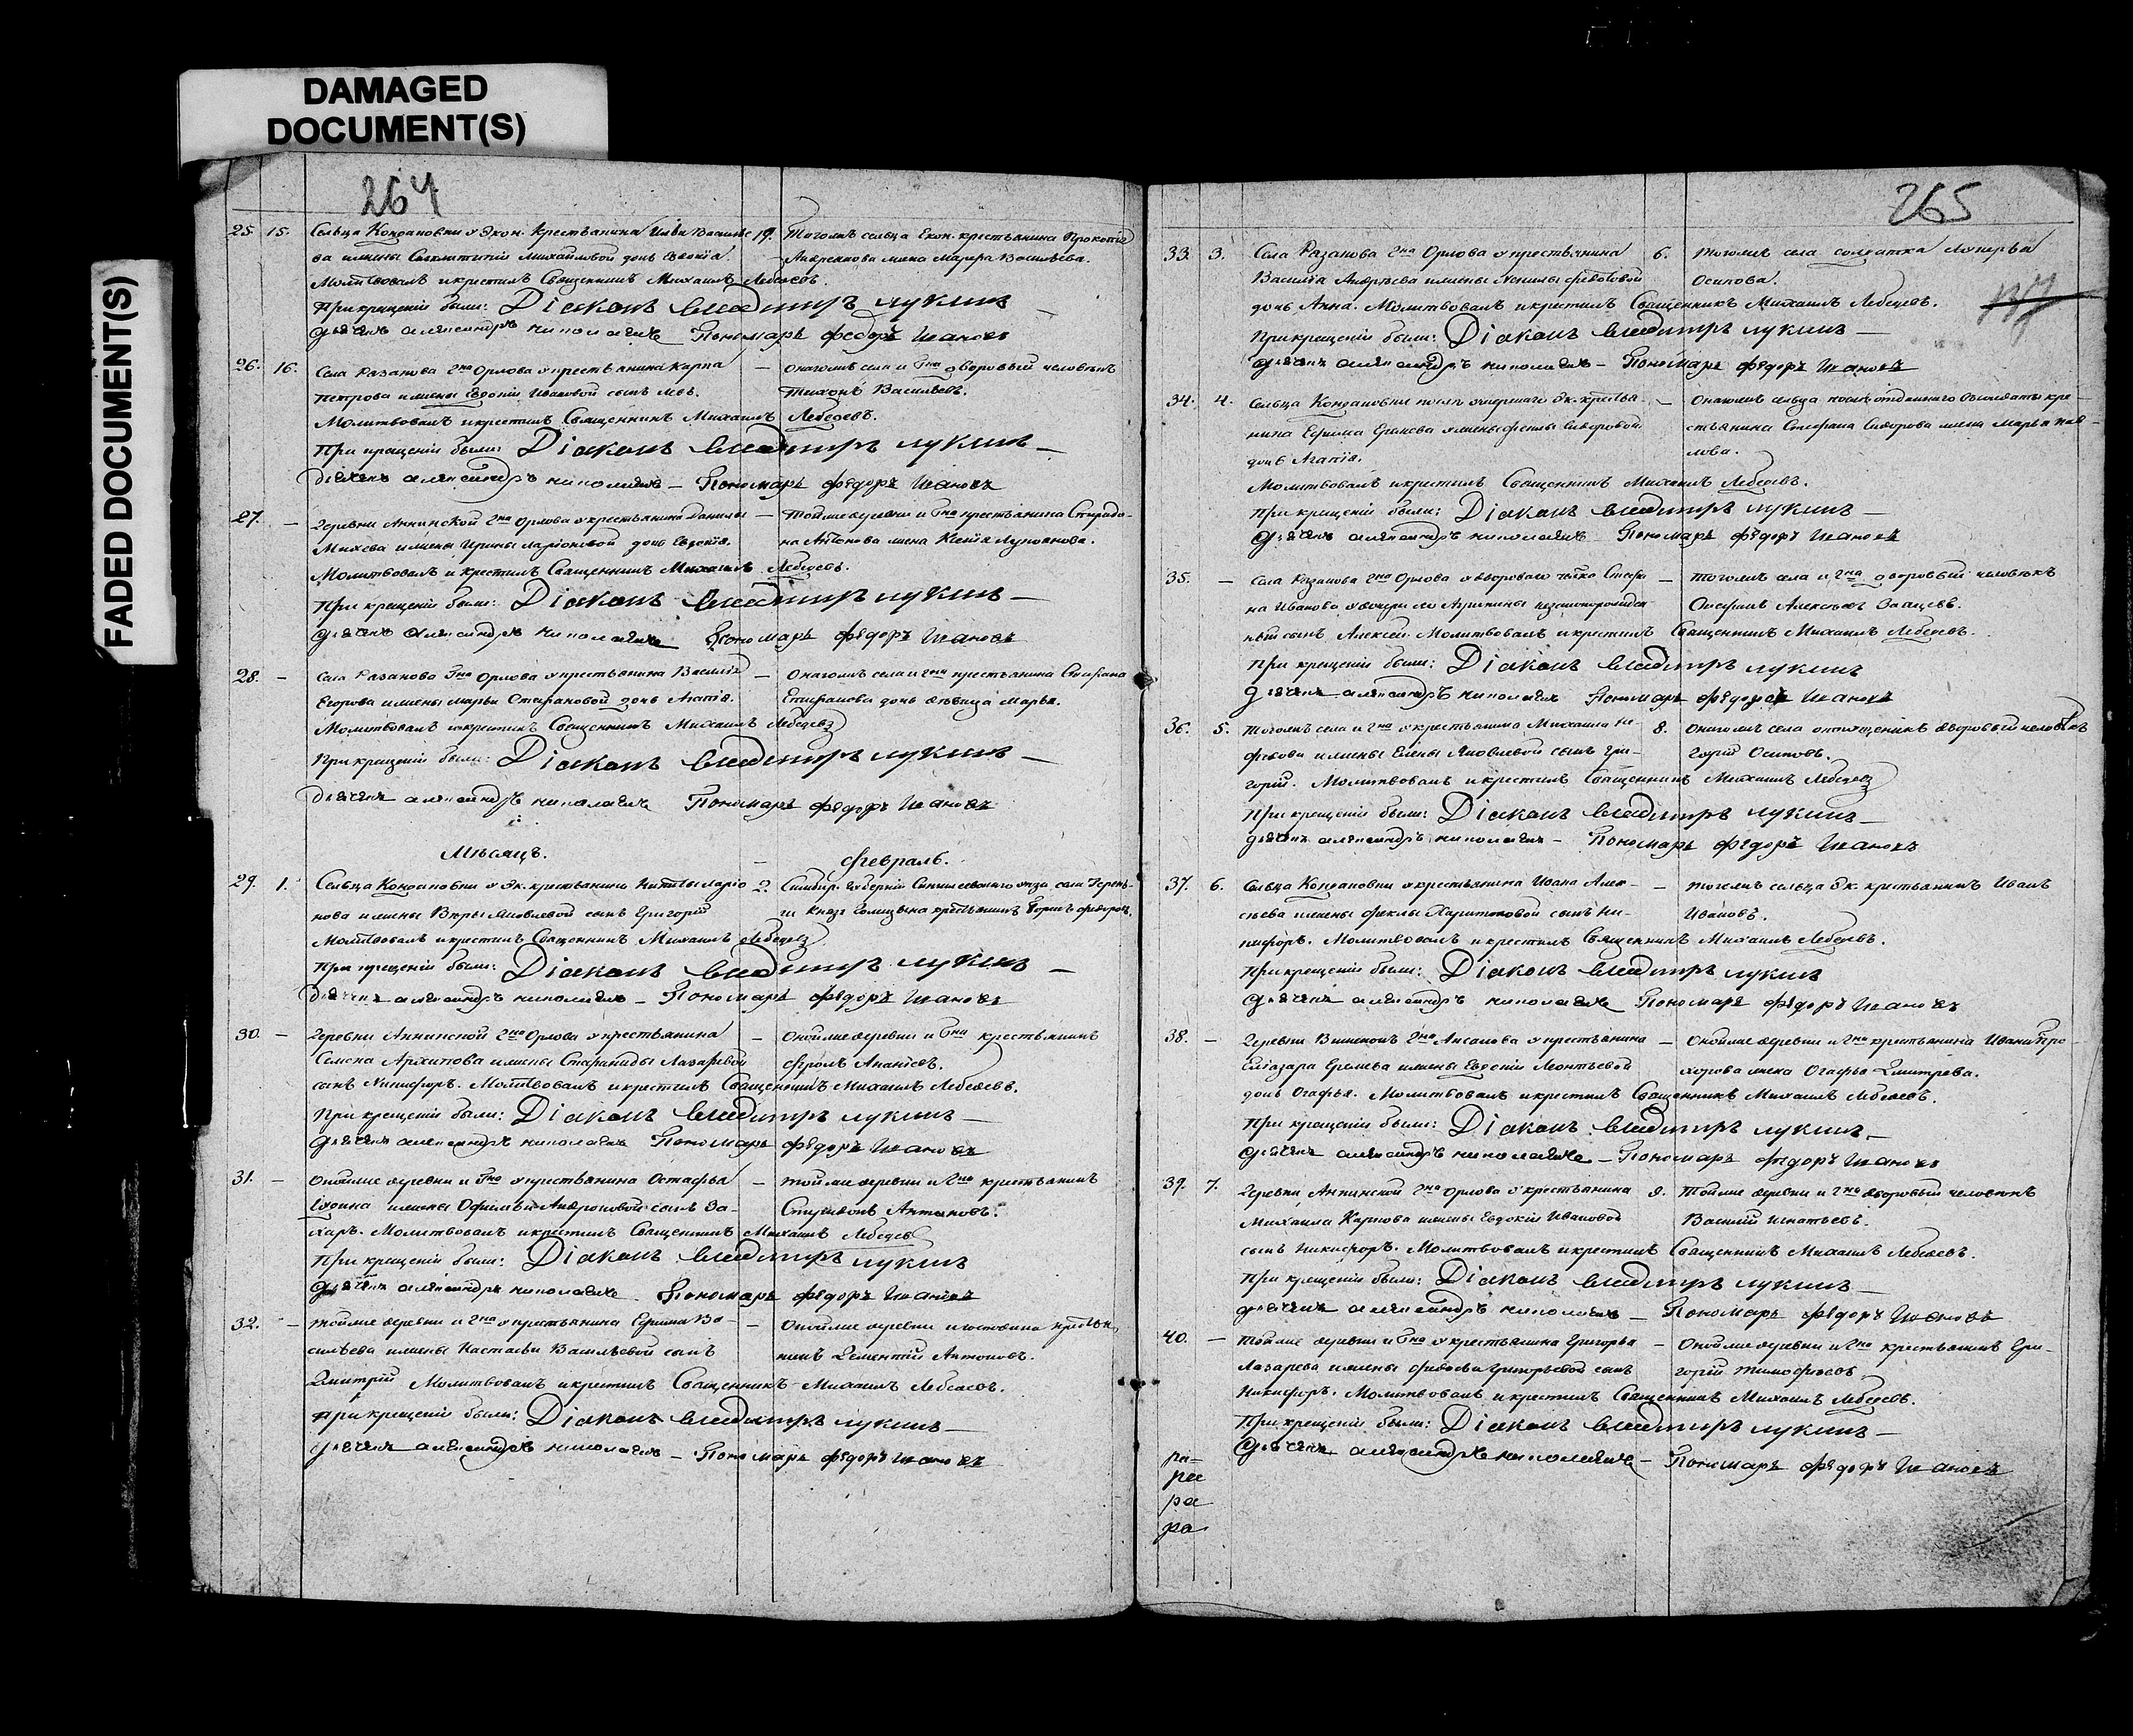 DAMAGED
DOCUMENT(S)
FADED DOCUMENT(S)
264
25. 15. Сельца Кондаковки у Экон. крестьянина Ильи Василье- 19. Тогожъ сельца Экон. крестьянина Прокопія
ва и жены Михайловой дочь Евдокія. жена Васильева.
Молитвовалъ и крестилъ Священникъ Михаилъ Лебедевъ.
При крещеніи были: Діаконъ Владимиръ Лукинъ —
Дьячекъ Александръ Николаевъ Пономарь Федоръ Ивановъ
26. 16. Села Разанова Гна Орлова у крестьянина Карпа — Онагожъ села и Гна дворовый человѣкъ
Петрова и жены Евдокіи Ивановой сынъ Левъ. Тихонъ Васильевъ.
Молитвовалъ и крестилъ Священникъ Михаилъ Лебедевъ.
При крещеніи были: Діаконъ Владимиръ Лукинъ —
Дьячекъ Александръ Николаевъ — Пономарь Федоръ Ивановъ
27. — Деревни Аннинской Гна Орлова у крестьянина Данилы — Тойже деревни и Гна крестьянина Спиридо-
Михева и жены Ирины Ларіоновой дочь Евдокія. на Антонова жена Ксенія Лукьянова.
Молитвовалъ и крестилъ Священникъ Михаилъ Лебедевъ.
При крещеніи были: Діаконъ Владимиръ Лукинъ —
Дьячекъ Александръ Николаевъ Пономарь Федоръ Ивановъ
28. — Села Разанова Гна Орлова у крестьянина Василія — Онагожъ села и Гна крестьянина Стефана
Егорова и жены Марьи Стефановой дочь Агапія. Епифанова дочь дѣвица Марья.
Молитвовалъ и крестилъ Священникъ Михаилъ Лебедевъ
При крещеніи были: Діаконъ Владимиръ Лукинъ —
Дьячекъ Александръ Николаевъ Пономарь Федоръ Ивановъ
Мѣсяцъ. — Февраль.
29. 1. Сельца Кондаковки у Эк. крестьянина Никиты Ларіо- 2. Симбир. Губерніи уѣзда села Терень-
нова и жены Вѣры Яковлевой сынъ Григорій ги Князя Голицына крестьянинъ Федоров.
Молитвовалъ и крестилъ Священникъ Михаилъ Лебедевъ
При крещеніи были: Діаконъ Владимиръ Лукинъ —
Дьячекъ Александръ Николаевъ — Пономарь Федоръ Ивановъ
30. — Деревни Аннинской Гна Орлова у крестьянина — Онойже деревни и Гна крестьянинъ
Семена Архипова и жены Стефаниды Лазаревой Фролъ Ананьевъ.
сынъ Никифоръ. Молитвовалъ и крестилъ Священникъ Михаилъ Лебедевъ.
При крещеніи были: Діаконъ Владимиръ Лукинъ —
Дьячекъ Александръ Николаевъ Пономарь Федоръ Ивановъ
31. — Онойже деревни и Гна у крестьянина Остафья — Тойже деревни и Гна крестьянинъ
и жены Офимьи Андроновой сынъ За- Спиридонъ Антоновъ.
харъ. Молитвовалъ и крестилъ Священникъ Михаилъ Лебедевъ
При крещеніи были: Діаконъ Владимиръ Лукинъ
Дьячекъ Александръ Николаевъ. Пономарь Федоръ Ивановъ
32. — Тойже деревни и Гна у крестьянина Ефима Ва- — Онойже деревни и господина крестья-
сильева и жены Настасьи Васильевой сынъ нинъ Дементій Антоновъ.
Дмитрій Молитвовалъ и крестилъ Священникъ Михаилъ Лебедевъ.
При крещеніи были: Діаконъ Владимиръ Лукинъ —
Дьячекъ Александръ Николаевъ — Пономарь Федоръ Ивановъ
265
33. 3. Села Разанова Гна Орлова у крестьянина 6. Тогожъ села солдатка Лукерья
Василія Андреева и жены Федотовой Осипова.
дочь Анна. Молитвовалъ и крестилъ Священникъ Михаилъ Лебедевъ.
При крещеніи были: Діаконъ Владимиръ Лукинъ —
Дьячекъ Александръ Николаевъ — Пономарь Федоръ Ивановъ
34. 4. Сельца Кондаковки Эк. крестья- — Онагожъ сельца кре-
нина Ефима и жены Феклы Сидоровой стьянина Стефана Сидорова жена Марья Пав-
дочь Агапія. лова.
Молитвовалъ и крестилъ Священникъ Михаилъ Лебедевъ.
При крещеніи были: Діаконъ Владимиръ Лукинъ —
Дьячекъ Александръ Николаевъ Пономарь Федоръ Ивановъ
35. — Села Разанова Гна Орлова у двороваго челка Стефа- — Тогожъ села и Гна дворовый человѣкъ
на Иванова у дочери его незаконорожден- Алексѣевъ Зайцевъ.
ный сынъ Алексѣй. Молитвовалъ и крестилъ Священникъ Михаилъ Лебедевъ.
При крещеніи были: Діаконъ Владимиръ Лукинъ
Дьячекъ Александръ Николаевъ Пономарь Федоръ Ивановъ
36. 5. Тогожъ села и Гна у крестьянина Михаила 8. Онагожъ села дворовый человѣкъ
и жены Елены Яковлевой сынъ Гри- Осиповъ.
горій. Молитвовалъ и крестилъ Священникъ Михаилъ Лебедевъ
При крещеніи были: Діаконъ Владимиръ Лукинъ —
Дьячекъ Александръ Николаевъ — Пономарь Федоръ Ивановъ
37. 6. Сельца Кондаковки у крестьянина Ивана Алек- — Тогожъ сельца Эк. крестьянинъ Иванъ
сѣева и жены Феклы Харитоновой сынъ Ни- Ивановъ.
кифоръ. Молитвовалъ и крестилъ Священникъ Михаилъ Лебедевъ.
При крещеніи были: Діаконъ Владимиръ Лукинъ
Дьячекъ Александръ Николаевъ Пономарь Федоръ Ивановъ
38. — Деревни Гна Аксакова у крестьянина — Онойже деревни и Гна крестьянина Ивана Про-
Еліазара Еремева и жены Евдокіи Леонтьевой хорова жена Огафья Дмитрева.
дочь Огафья. Молитвовалъ и крестилъ Священникъ Михаилъ Лебедевъ.
При крещеніи были: Діаконъ Владимиръ Лукинъ —
Дьячекъ Александръ Николаевъ — Пономарь Федоръ Ивановъ
39. 7. Деревни Аннинской Гна Орлова у крестьянина 9. Тойже деревни и Гна дворовый человѣкъ
Михаила Карпова и жены Евдокіи Ивановой Василій Игнатьевъ.
сынъ Никифоръ. Молитвовалъ и крестилъ Священникъ Михаилъ Лебедевъ.
При крещеніи были: Діаконъ Владимиръ Лукинъ —
Дьячекъ Александръ Николаевъ — Пономарь Федоръ Ивановъ
40. — Тойже деревни и Гна у крестьянина Григорья — Онойже деревни и Гна крестьянинъ Гри-
Лазарева и жены Федосьи Григорьевой сынъ горій Тимофѣевъ
Никифоръ. Молитвовалъ и крестилъ Священникъ Михаилъ Лебедевъ.
При крещеніи были: Діаконъ Владимиръ Лукинъ —
Дьячекъ Александръ Николаевъ — Пономарь Федоръ Ивановъ
ра-
ра
ра